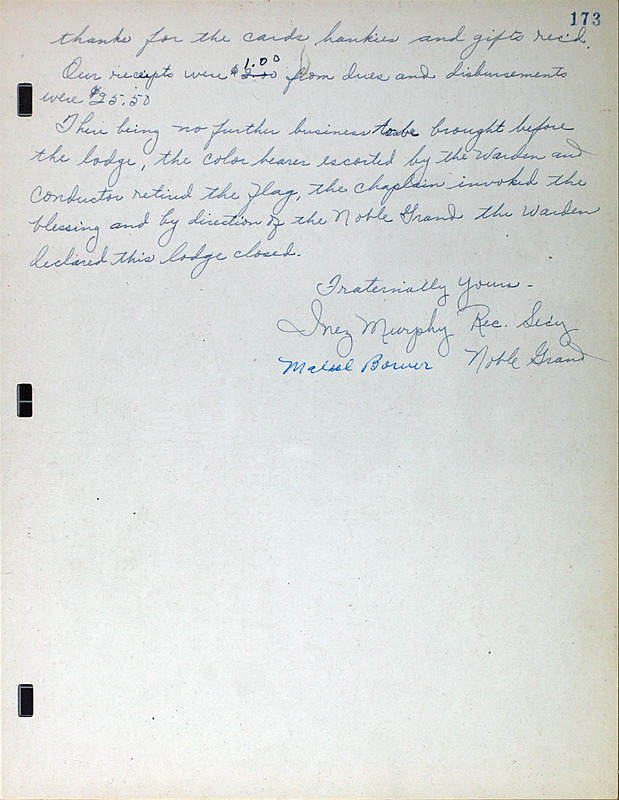 173
thanks for the cards hankies and gifts rec'd.
Our receipts were $2.00 1.00 from dues and disbursements
were $25.50
There being no further business to be brought before
the lodge, the color bearer escorted by the Warden and
Conductor retired the flag, the chaplain invoked the
blessing and by direction of the Noble Grand the Warden
declared this lodge closed.
Fraternally Yours -
Inez Murphy Rec. Secy
Mabel Bower Noble Grand